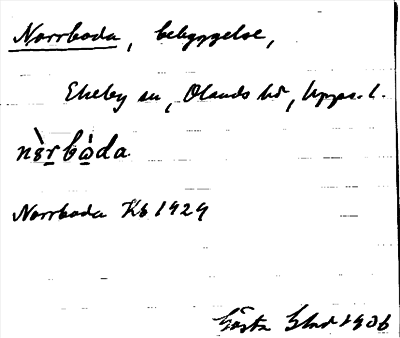 Norrboda, bebyggelse,
Ekeby sn, Olands hd, Upps. l.
nòrbòda
Norrboda Kb 1929
Gösta 1906